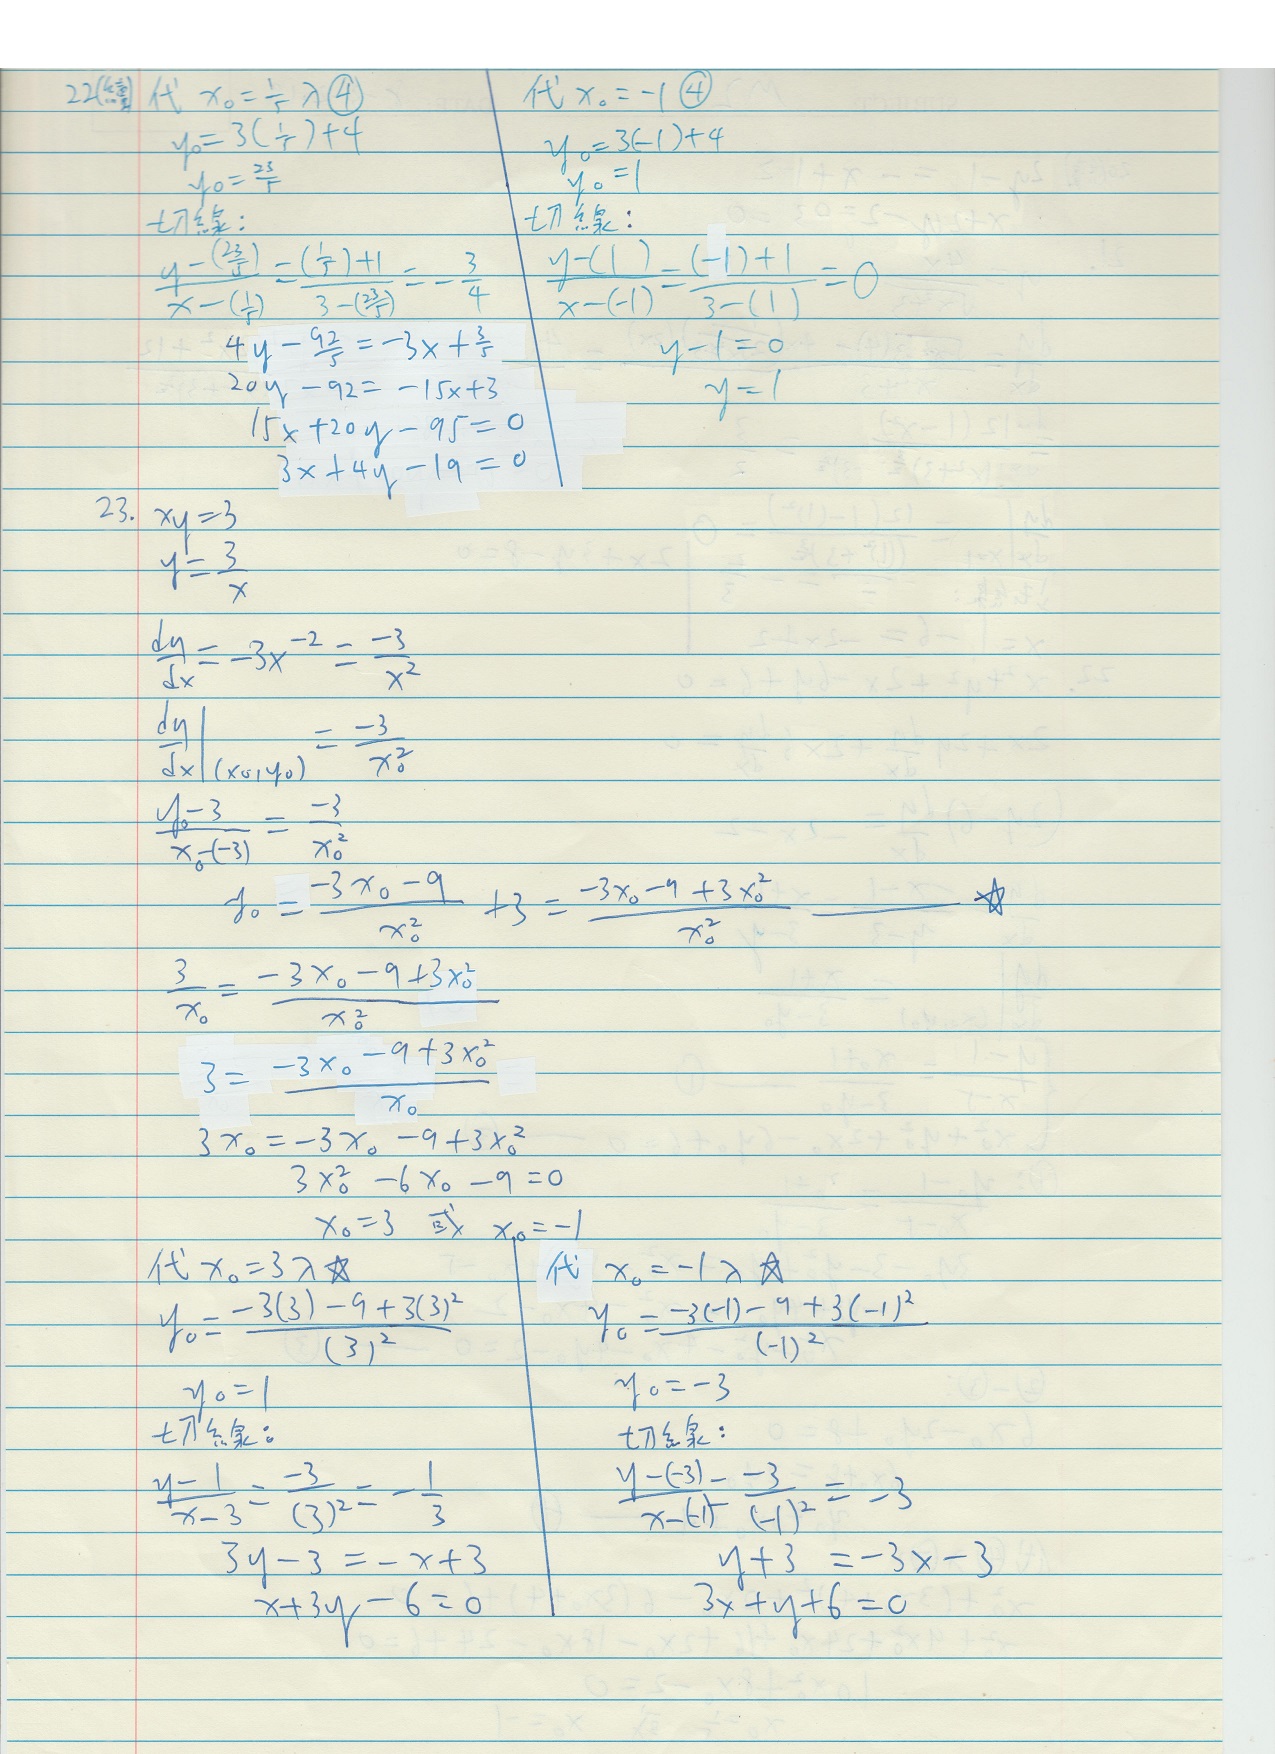 22(續) 代 x₀ = 1/5 入④
y₀ = 3(1/5)+4
y₀ = 23/5
切線:
(y-(23/5))/(x-(1/5)) = ((1/5)+1)/(3-(23/5)) = -3/4
4y - 92/5 = -3x + 3/5
20y - 92 = -15x+3
15x+20y-95=0
3x+4y-19=0
代 x₀ = -1 ④
y₀ = 3(-1)+4
y₀ = 1
切線:
(y-(1))/(x-(-1)) = ((-1)+1)/(3-(1)) = 0
y-1=0
y=1
23. xy=3
y = 3/x
dy/dx = -3x⁻² = -3/x²
dy/dx|(x₀,y₀) = -3/x₀²
(y₀-3)/(x₀-(-3)) = -3/x₀²
y₀ = (-3x₀-9)/x₀² +3 = (-3x₀-9+3x₀²)/x₀² —— ☆
3/x₀ = (-3x₀-9+3x₀²)/x₀²
3 = (-3x₀-9+3x₀²)/x₀
3x₀ = -3x₀-9+3x₀²
3x₀²-6x₀-9=0
x₀=3 或 x₀=-1
代 x₀=3入☆
y₀ = (-3(3)-9+3(3)²)/(3)²
y₀=1
切線:
(y-1)/(x-3) = -3/(3)² = -1/3
3y-3 = -x+3
x+3y-6=0
代 x₀=-1入☆
y₀ = (-3(-1)-9+3(-1)²)/(-1)²
y₀=-3
切線:
(y-(-3))/(x-(-1)) = -3/(-1)² = -3
y+3 = -3x-3
3x+y+6=0